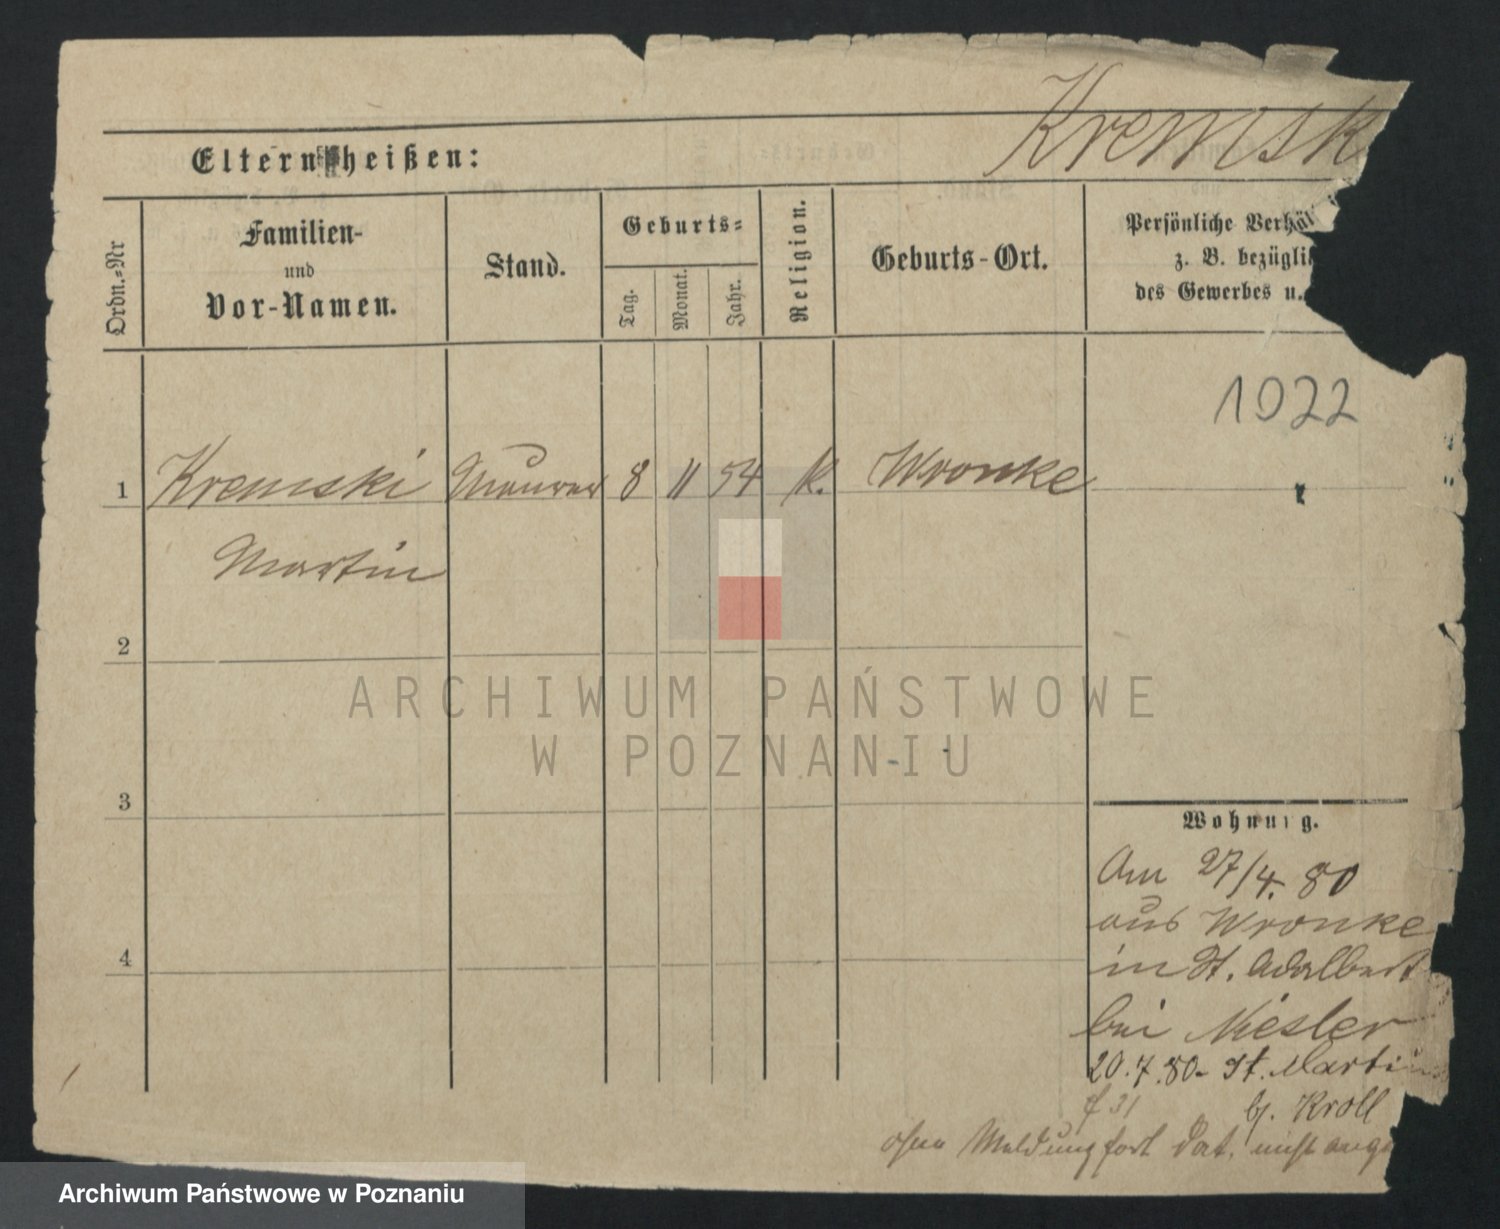 Kremsk
Eltern heißen:
Ordn.=Nr
Familien-
und
Vor-Namen.
Stand.
Geburts=
Tag.
Monat.
Jahr.
Religion.
Geburts-Ort.
Persönliche Verhä
z. B. bezügli
des Gewerbes u.
1022
1 Kremski Maurer 8 11 54 k. Wronke
Martin
2
3
4
Wohnung.
Am 27/4. 80
aus Wronke
in St. Adalbert
bei Niesler
20.7.80- St. Martin
31
bj. Kroll
ohne Meldung fort Dat. nicht ange
ARCHIWUM PAŃSTWOWE
W POZNANIU
Archiwum Państwowe w Poznaniu